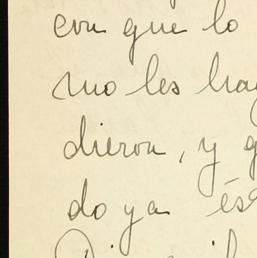 con que lo
mo les hay
dieron, y g
do ya és